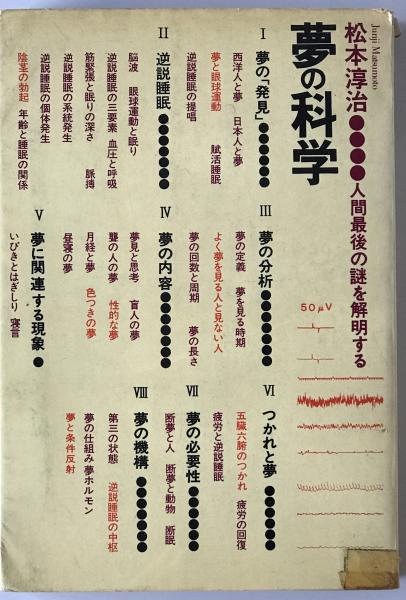 Junji Matsumoto
松本淳治●●●●人間最後の謎を解明する
夢の科学
I 夢の「発見」●●●●●●●
西洋人と夢 日本人と夢
夢と眼球運動 賦活睡眠
逆説睡眠の提唱
II 逆説睡眠●●●●●●●
脳波 眼球運動と眠り
逆説睡眠の三要素 血圧と呼吸
筋緊張と眠りの深さ 脈搏
逆説睡眠の系統発生
逆説睡眠の個体発生
陰茎の勃起 年齢と睡眠の関係
III 夢の分析●●●●●●●
夢の定義 夢を見る時期
よく夢を見る人と見ない人
夢の回数と周期 夢の長さ
IV 夢の内容●●●●●●●
夢見と思考 盲人の夢
聾の人の夢 性的な夢
月経と夢 色つきの夢
昼寝の夢
V 夢に関連する現象●
いびきとはぎしり 寝言
50μV
VI つかれと夢●●●●●●
五臓六腑のつかれ 疲労の回復
疲労と逆説睡眠
VII 夢の必要性●●●●●●
断夢と人 断夢と動物 断眠
VIII 夢の機構●●●●●●●
第三の状態 逆説睡眠の中枢
夢の仕組み 夢ホルモン
夢と条件反射